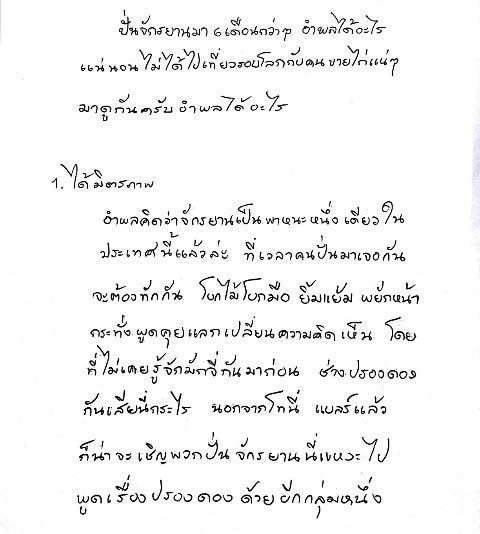 ปั่นจักรยานมา 6 เดือนกว่าๆ อำพลได้อะไร
แน่นอนไม่ได้ไปเที่ยวรอบโลกกับคนขายไก่แน่ๆ
มาดูกันครับ อำพลได้อะไร
1. ได้มิตรภาพ
อำพลคิดว่าจักรยานเป็นพาหนะหนึ่งเดียวใน
ประเทศนี้แล้วล่ะ ที่เวลาคนปั่นมาเจอกัน
จะต้องทักกัน โบกไม้โบกมือ ยิ้มแย้ม พยักหน้า
กระทั่งพูดคุยแลกเปลี่ยนความคิดเห็น โดย
ที่ไม่เคยรู้จักมักจี่กันมาก่อน ช่างปรองดอง
กันเสียนี่กระไร นอกจากโทนี่ แบลร์แล้ว
ก็น่าจะเชิญพวกปั่นจักรยานนี่แหวะไป
พูดเรื่องปรองดองด้วยอีกกลุ่มหนึ่ง